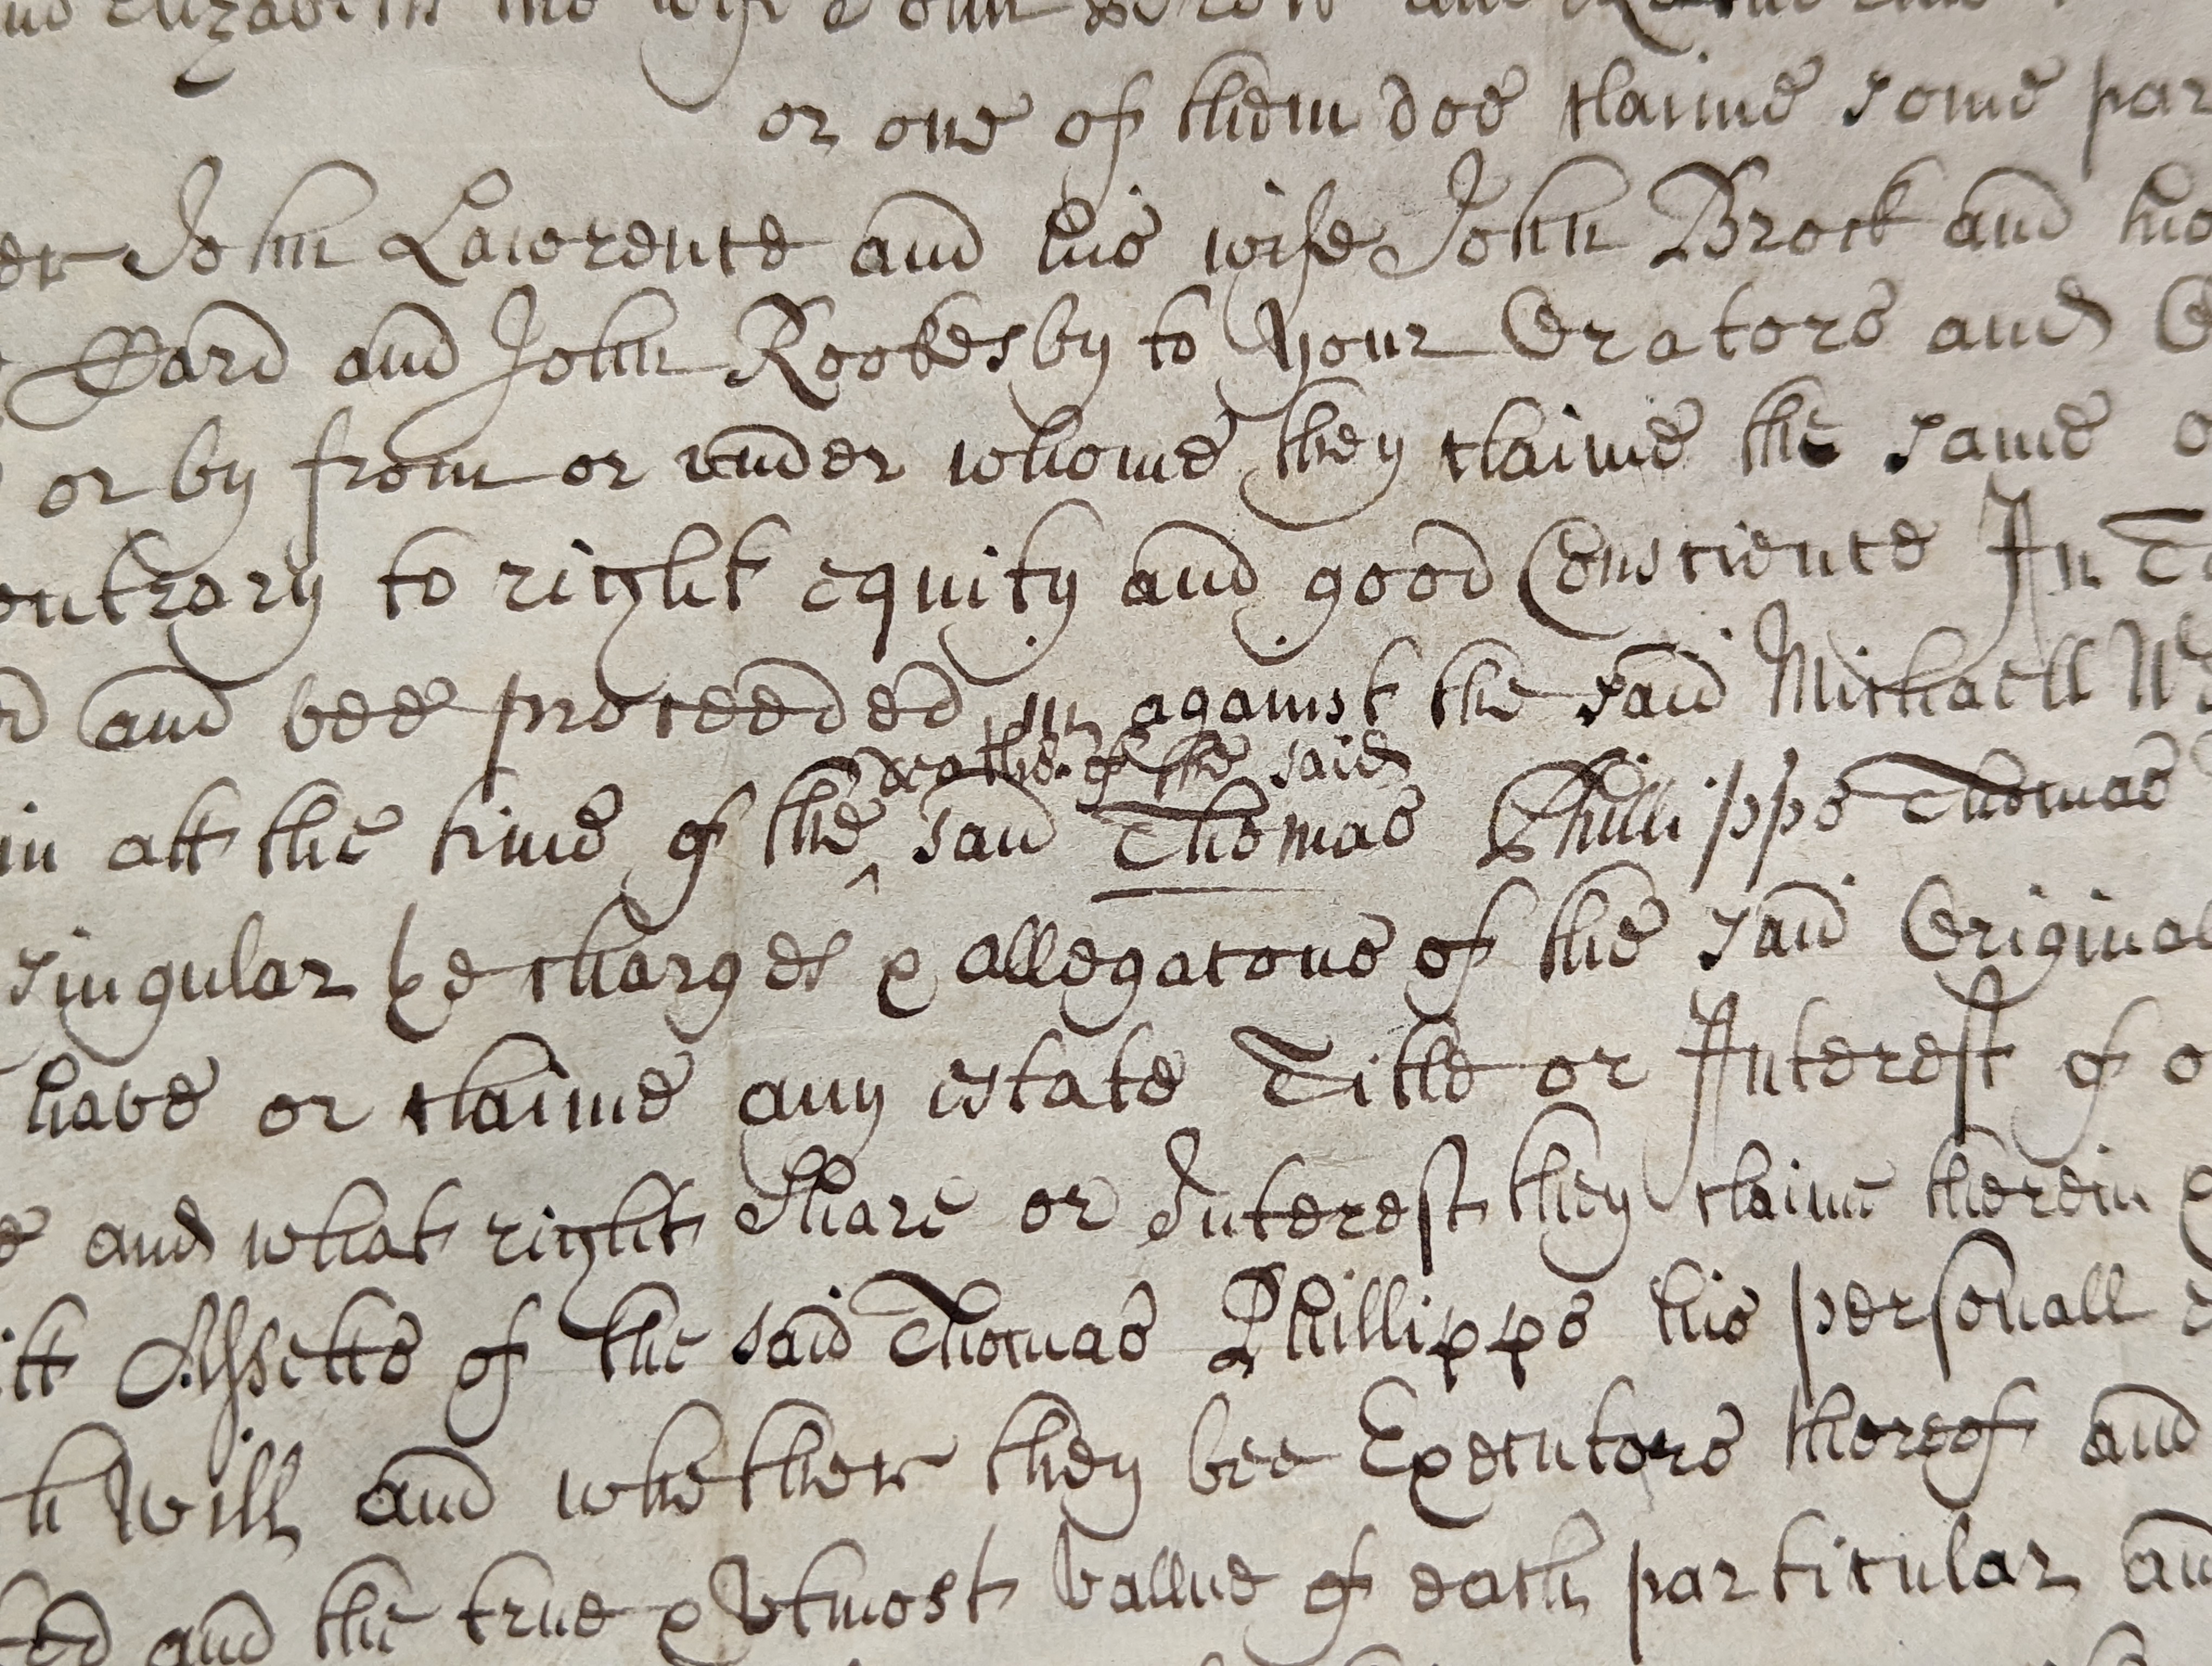 Elizabeth his wife John
or one of them doe claime some par
er John Lawrence and his wife John Brock and his
Card and John Rookesby to your Orators and O
or by from or under whome they claime the same o
ontrary to right equity and good Conscience In T
d and bee proceeded in against the said Michaell
deathe of the said
in att the time of the ^ said Thomas Phillipps Thomas
singular ye charges & allegacons of the said Original
have or claime any estate Title or Interest of o
e and what right Share or Interest they claime therein
itt Assetts of the said Thomas Phillipps his personall e
h Will and whether they bee Executors thereof and
ed and the true & Utmost Vallue of each particular an